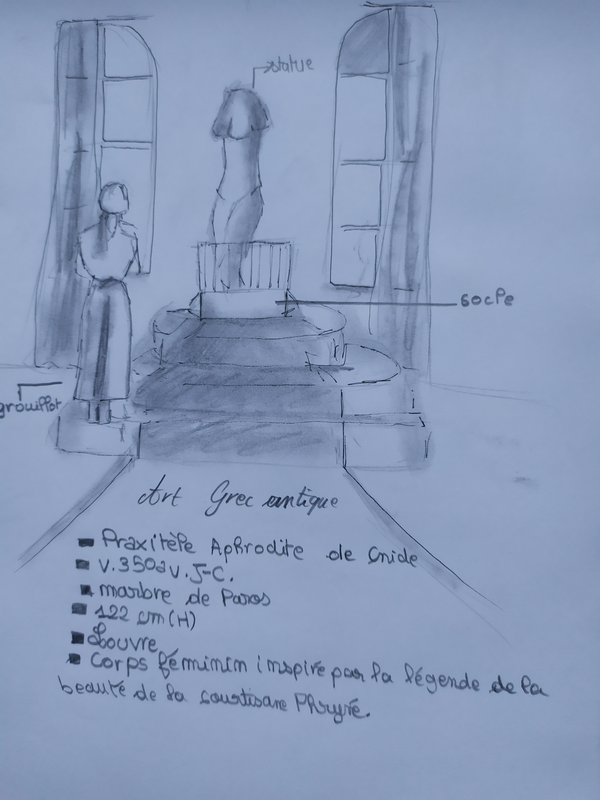 statue
socle
grouillot
Art Grec antique
Praxitèle Aphrodite de Cnide
v.350av.J-C.
marbre de Paros
122 cm(H)
Louvre
Corps féminin inspiré par la légende de la
beauté de la courtisane Phryné.